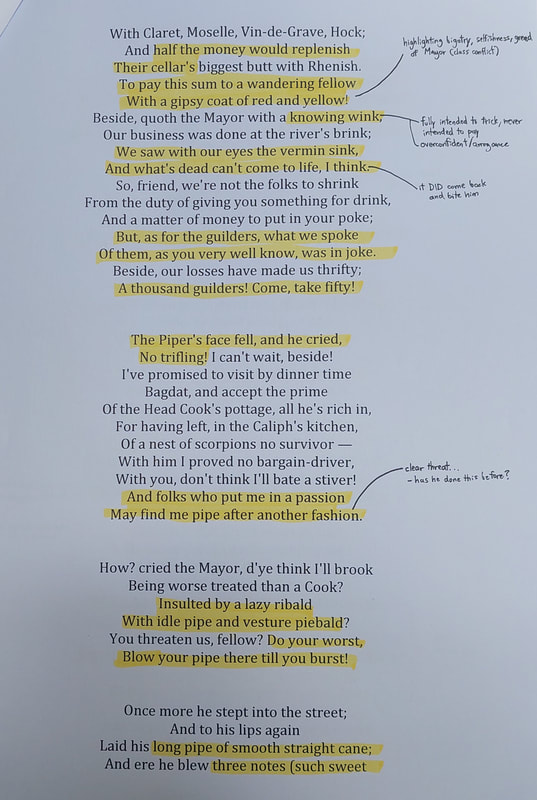 With Claret, Moselle, Vin-de-Grave, Hock;
And half the money would replenish
Their cellar's biggest butt with Rhenish.
To pay this sum to a wandering fellow
With a gipsy coat of red and yellow!
highlighting bigotry, selfishness, greed
of Mayor (class conflict)
Beside, quoth the Mayor with a knowing wink,
Our business was done at the river's brink;
We saw with our eyes the vermin sink,
And what's dead can't come to life, I think.
fully intended to trick, never
intended to pay
overconfident/arrogance
So, friend, we're not the folks to shrink
From the duty of giving you something for drink,
And a matter of money to put in your poke;
But, as for the guilders, what we spoke
Of them, as you very well know, was in joke.
Beside, our losses have made us thrifty;
A thousand guilders! Come, take fifty!
it DID come back
and bite him
The Piper's face fell, and he cried,
No trifling! I can't wait, beside!
I've promised to visit by dinner time
Bagdat, and accept the prime
Of the Head Cook's pottage, all he's rich in,
For having left, in the Caliph's kitchen,
Of a nest of scorpions no survivor —
With him I proved no bargain-driver,
With you, don't think I'll bate a stiver!
And folks who put me in a passion
May find me pipe after another fashion.
clear threat...
- has he done this before?
How? cried the Mayor, d'ye think I'll brook
Being worse treated than a Cook?
Insulted by a lazy ribald
With idle pipe and vesture piebald?
You threaten us, fellow? Do your worst,
Blow your pipe there till you burst!
Once more he stept into the street;
And to his lips again
Laid his long pipe of smooth straight cane;
And ere he blew three notes (such sweet